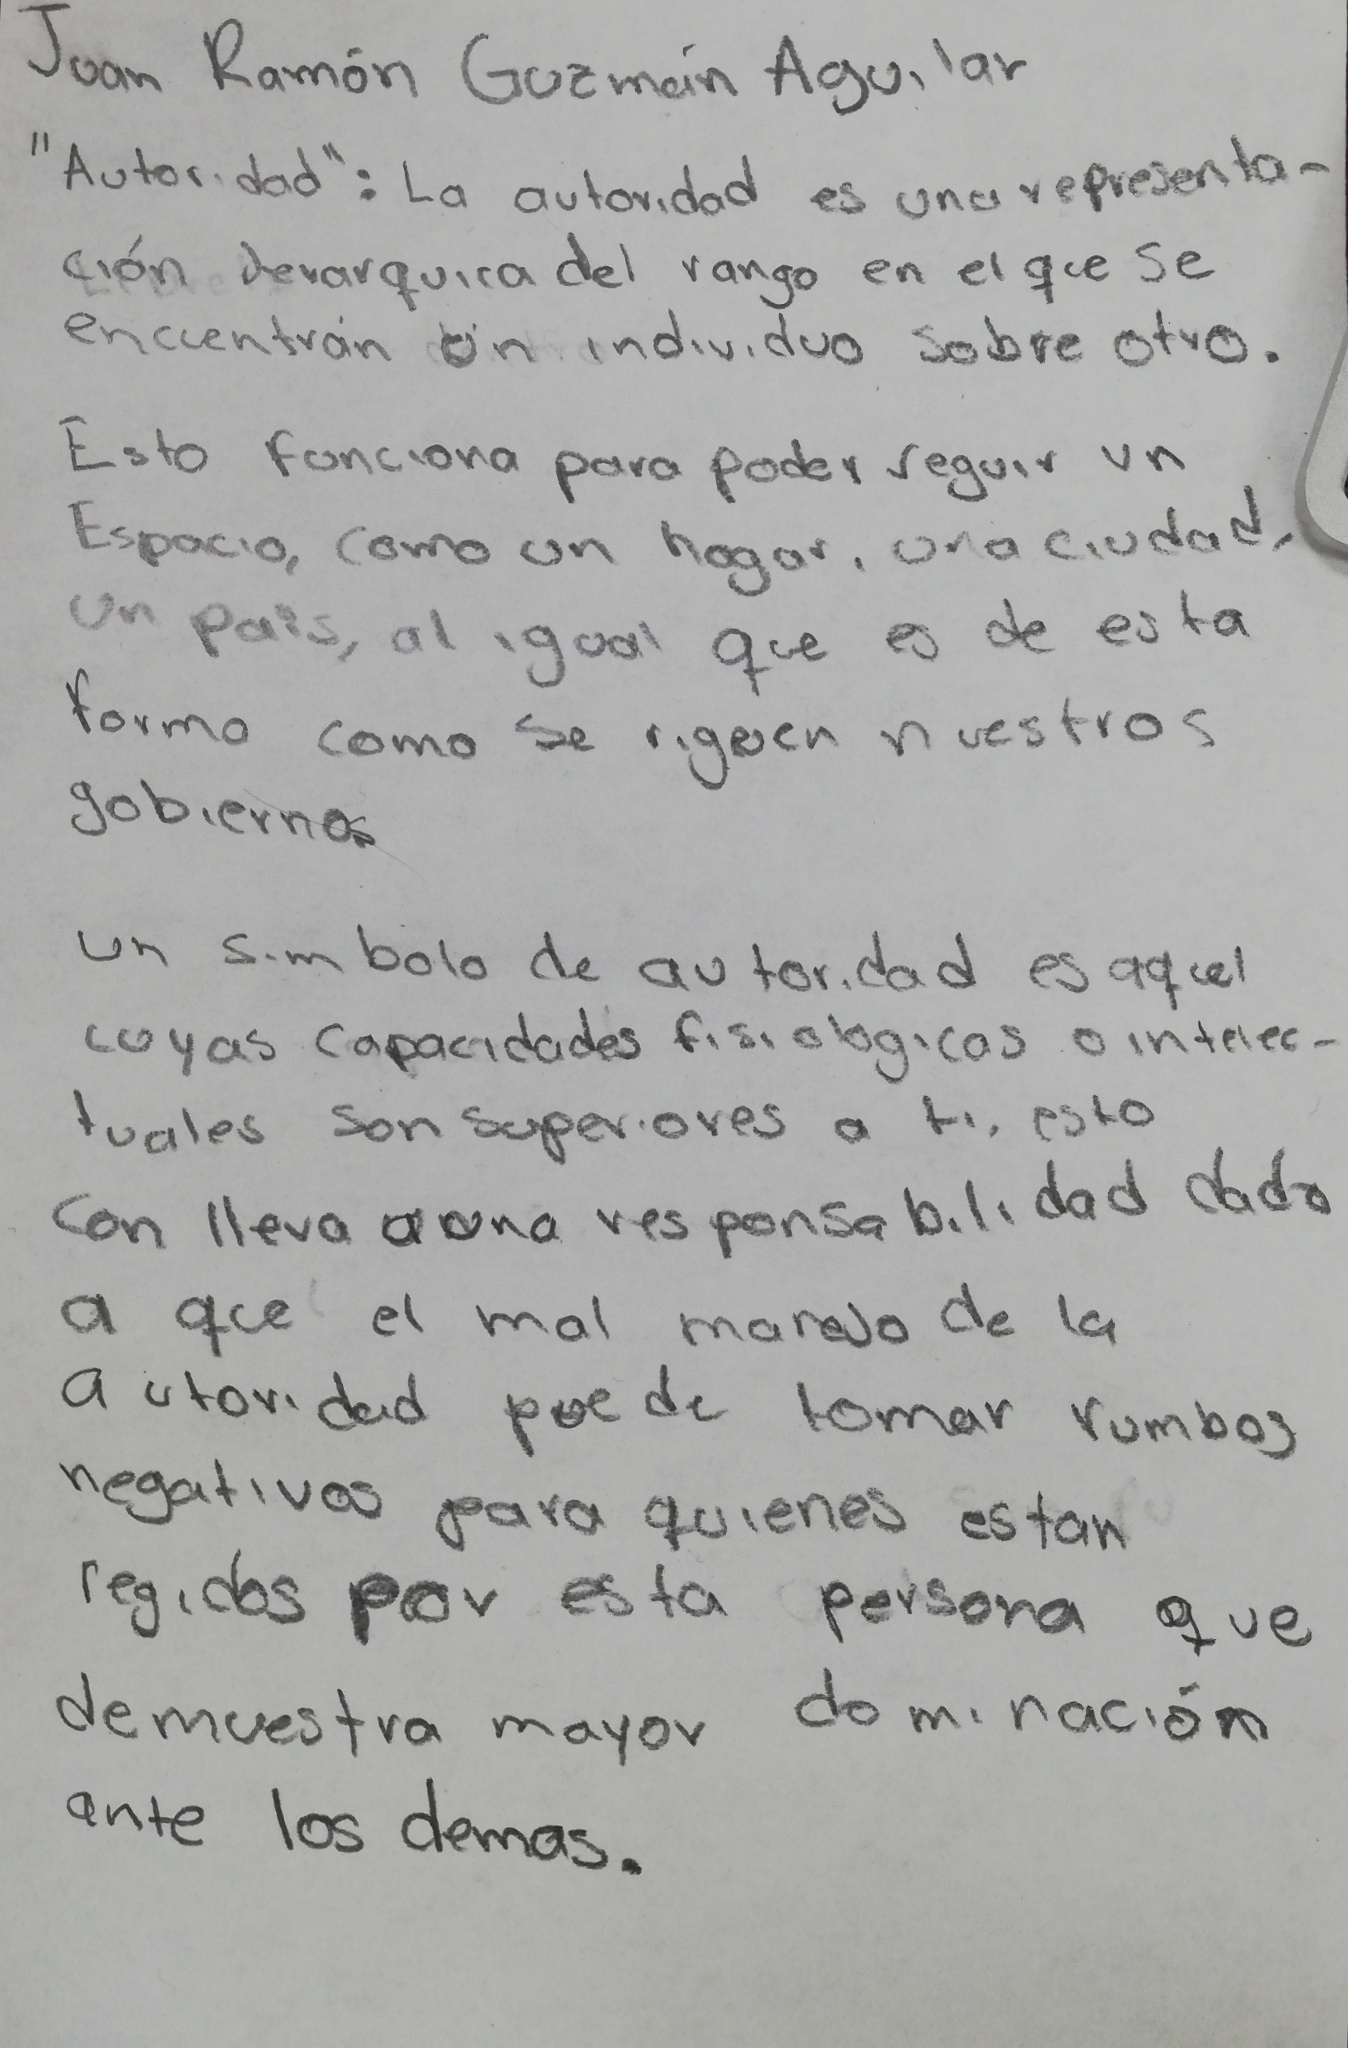 Juan Ramón Guzmán Aguilar
"Autoridad": La autoridad es una representa-
ción Jerarquica del rango en el que se
encuentrán un individuo sobre otro.
Esto funciona para poder seguir un
Espacio, como un hogar, una ciudad,
un país, al igual que es de esta
forma como se riguen nuestros
gobiernos
un simbolo de autoridad es aquel
cuyas capacidades fisiologicas o intelec-
tuales son superiores a ti, esto
con lleva a una responsabilidad dado
a que el mal manejo de la
autoridad puede tomar rumbos
negativos para quienes estan
regidos por esta persona que
demuestra mayor dominación
ante los demas.